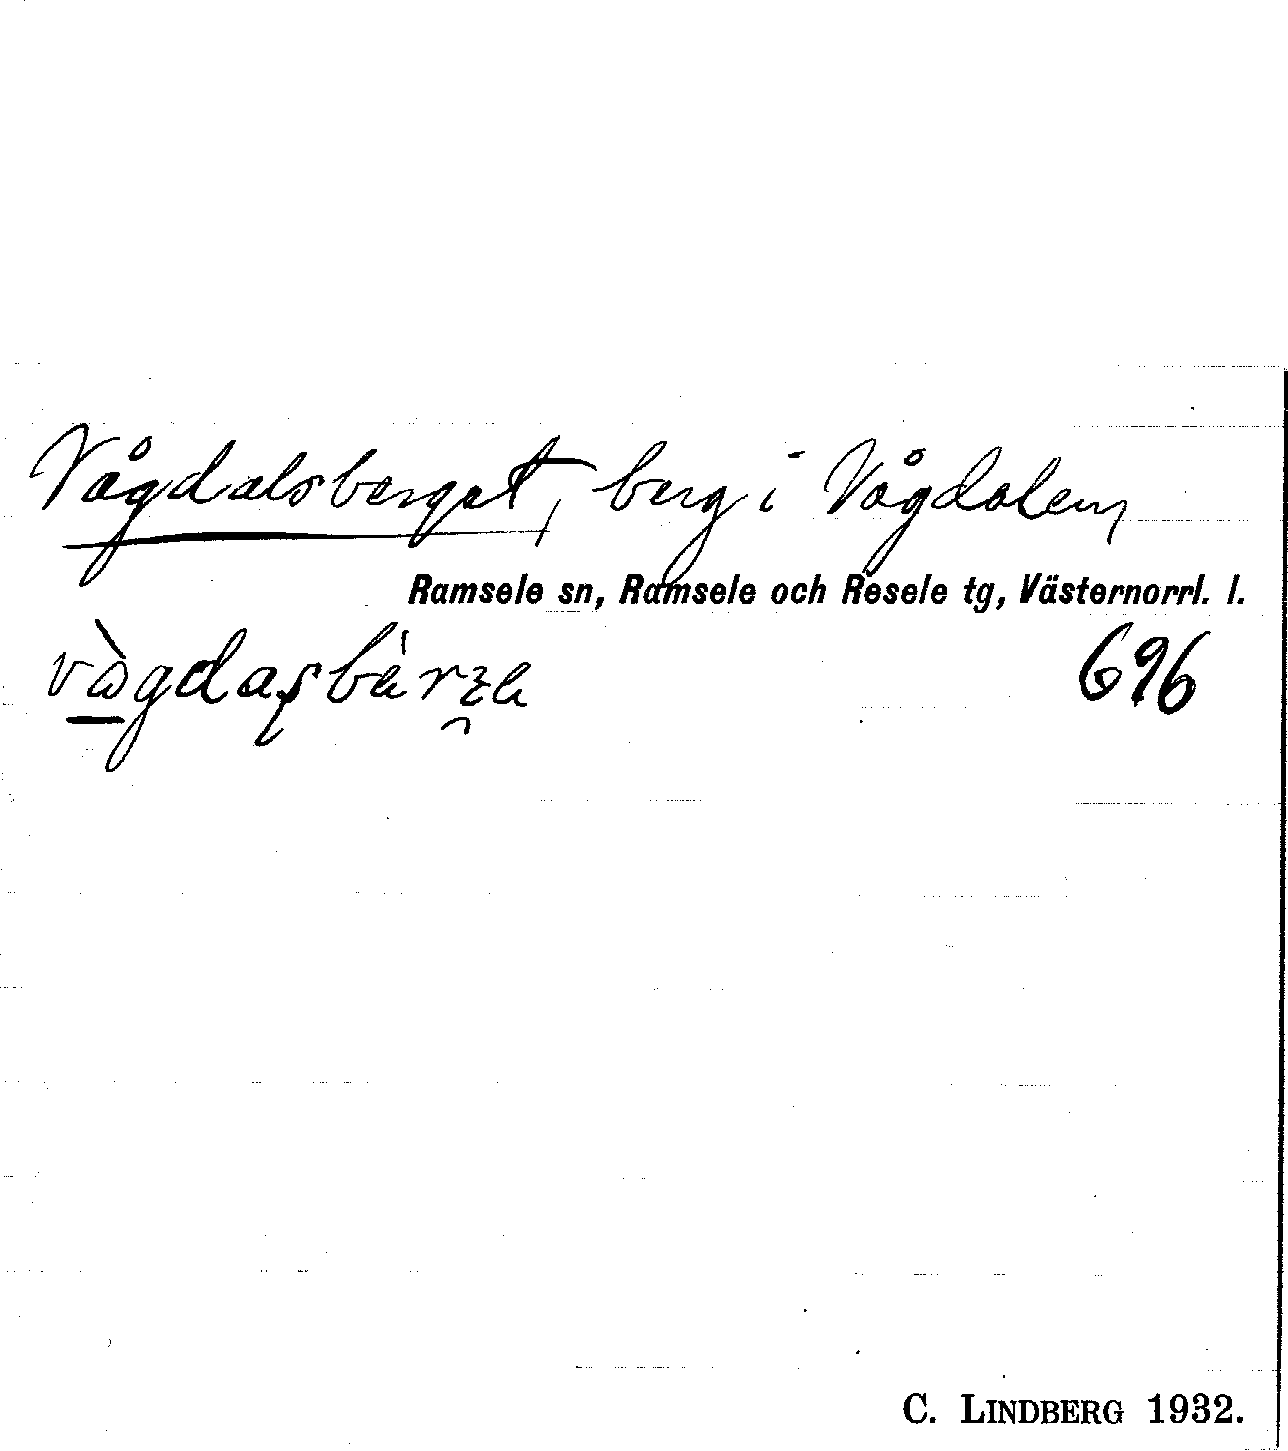 Vågdalsberget, berg i Vågdalen,
Ramsele sn, Ramsele och Resele tg, Västernorrl. l.
696
C. LINDBERG 1932.